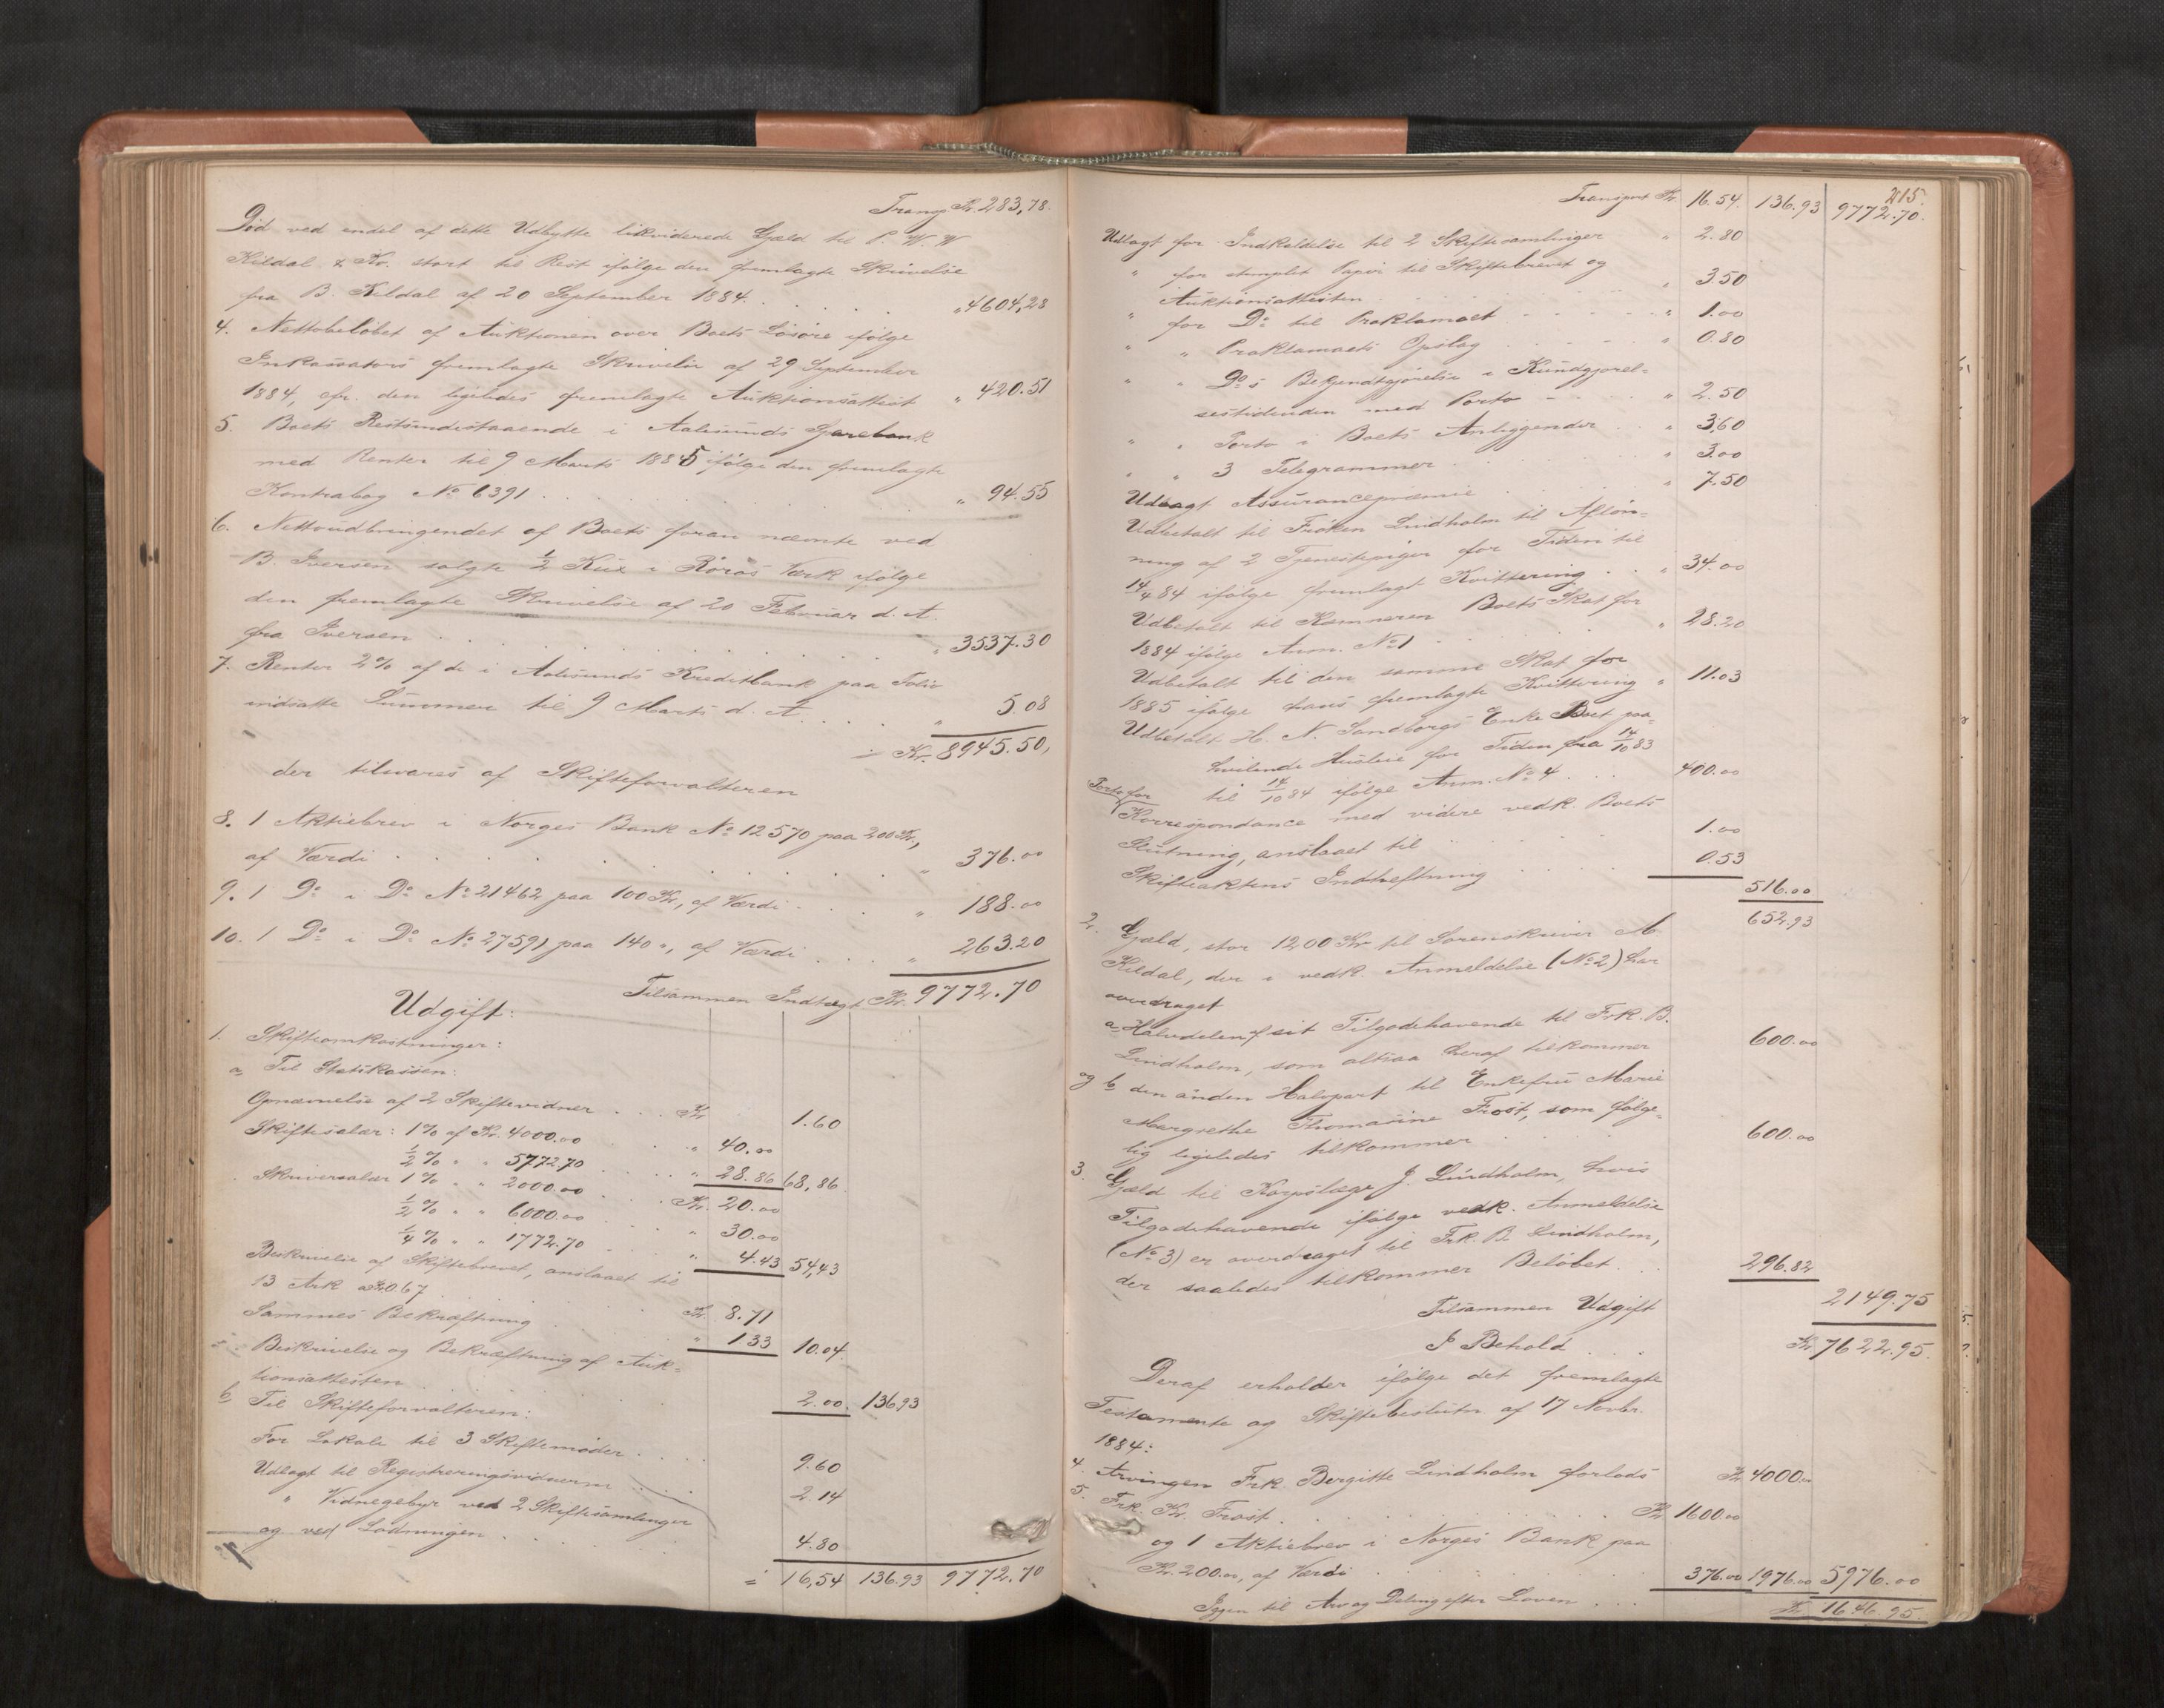 Transp. Kr. 283,78.
Død ved endel af dette Udbytte likviderede Gjæld til P. W. W
Kildal & Ko. stort til Rest ifølge den fremlagte Skrivelse
fra B. Kildal af 20 September 1884 . . . . „ 4604,28
4. Nettobeløbet af Auktionen over Boets Løsøre ifølge
Inkassators fremlagte Skrivelse af 29 September
1884, cfr. den ligeledes fremlagte Auktionsattest „ 420.51
5. Boets Restindestaaende i Aalesunds Sparebank
med Renter til 9 Marts 1885 ifølge den fremlagte
Kontrabog No 6391 . . . . . „ 94.55
6. Nettoudbringendet af Boets foran nævnte ved
B. Iversen solgte ½ Kux i Røros Værk ifølge
den fremlagte Skrivelse af 20 Februar d. A.
fra Iversen . . . . . „ 3537.30
7. Renter 2% af de i Aalesunds Kreditbank paa Folio
indsatte Summer til 9 Marts d. A. . . . „ 5.08
÷ Kr. 8945.50,
der tilsvares af Skifteforvalteren
8. 1 Aktiebrev i Norges Bank No 12570 paa 200 Kr.,
af Værdi . . . . . „ 376.00
9. 1 Do i Do No 21462 paa 100 Kr., af Værdi . . . „ 188.00
10. 1 Do i Do No 27591 paa 140 „, af Værdi . . . „ 263.20
Tilsammen Indtægt Kr. 9772.70
Udgift:
1. Skifteomkostninger:
a, Til Statskassen:
Opnævnelse af 2 Skiftevidner . . . Kr. 1.60
Skiftesalær: 1% af Kr. 4000.00 . . „ 40.00
½% „ „ 5772.70 . . . „ 28.86 68,86
Skriversalær 1% „ „ 2000.00 . . . Kr. 20.00
½% „ „ 6000.00 . . „ 30.00
¼% „ „ 1772.70 . . „ 4.43 54,43
Beskrivelse af Skiftebrevet, anslaaet til
13 Ark a Kr. 0.67 . . . . Kr. 8.71
Sammes Bekræftning . . . „ 1.33 10.04.
Beskrivelse og Bekræftning af Auk-
tionsattesten . . . 2.00. 136.93
b, Til Skifteforvalteren:
For Lokale til 3 Skiftemøder . . . 9.60
Udlagt til Registreringsvidnerne . . . 2.14
„ Vidnegebyr ved 2 Skiftesamlinger
og ved Lodningen . . . . 4.80
÷ 16,54 136.93 9772.70
215.
Transport Kr. 16.54. 136.93 9772.70.
Udlagt for Indkaldelse til 2 Skiftesamlinger „ 2.80
„ for stemplet Papir til Skiftebrevet og
Auktionsattesten . . . . „ 3.50
„ for Do til Proklamaet . . . „ 1.00
„ „ Proklamaets Opslag . . . „ 0.80
„ „ Do's Bekjendtgjørelse i Kundgjørel-
sestidenden med Porto . . . „ 2.50
„ „ Porto i Boets Anliggender . . „ 3.60
„ „ 3 Telegrammer . . . „ 3.00
Udlagt Assurancepræmie . . . „ 7.50
Udbetalt til Frøken Lindholm til Afløn-
ning af 2 Tjenestepiger for Tiden til
14/4 84 ifølge fremlagt Kvittering . . „ 34.00
Udbetalt til Kæmneren Boets Skat for
1884 ifølge Anm. No 1 . . . „ 28.20
Udbetalt til den samme Skat for
1885 ifølge hans fremlagte Kvittering „ 11.03
Udbetalt H. N. Sandborgs Enke Boet paa-
hvilende Husleie for Tiden fra 14/10 83
til 14/10 84 ifølge Anm. No 4 . . . 400.00
Porto for
Korrespondance med videre vedk. Boets
Slutning, anslaaet til . . . 1.00
Skifteaktens Indheftning . . . 0.53
516.00
652.93
2. Gjæld, stor 1200 Kr. til Sorenskriver M.
Kildal, der i vedk. Anmeldelse (No 2) har
overdraget
a, Halvdelen af sit Tilgodehavende til Frk. B.
Lindholm, som altsaa heraf tilkommer 600.00
og b, den anden Halvpart til Enkefru Marie
Margrethe Thomasine Frost, som følge-
lig ligeledes tilkommer . . . 600.00
3. Gjæld til Korpslæge J. Lindholm, hvis
Tilgodehavende ifølge vedk. Anmeldelse
(No 3) er overdraget til Frk. B. Lindholm,
der saaledes tilkommer Beløbet . . . 296.82
2149.75
Tilsammen Udgift
I Behold . . . Kr. 7622.95.
Deraf erholder ifølge det fremlagte
Testamente og Skiftebeslutn. af 17 Novbr.
1884:
4. Arvingen Frk. Bergitte Lindholm forlods Kr. 4000.00
5. Frk. Kr. Frost . . . . Kr. 1600.00
og 1 Aktiebrev i Norges Bank paa
Kr. 200.00, af Værdi . . . 376.00 1976.00 5976.00
Igjen til Arv og Deling efter Loven . . . Kr. 1646.95.